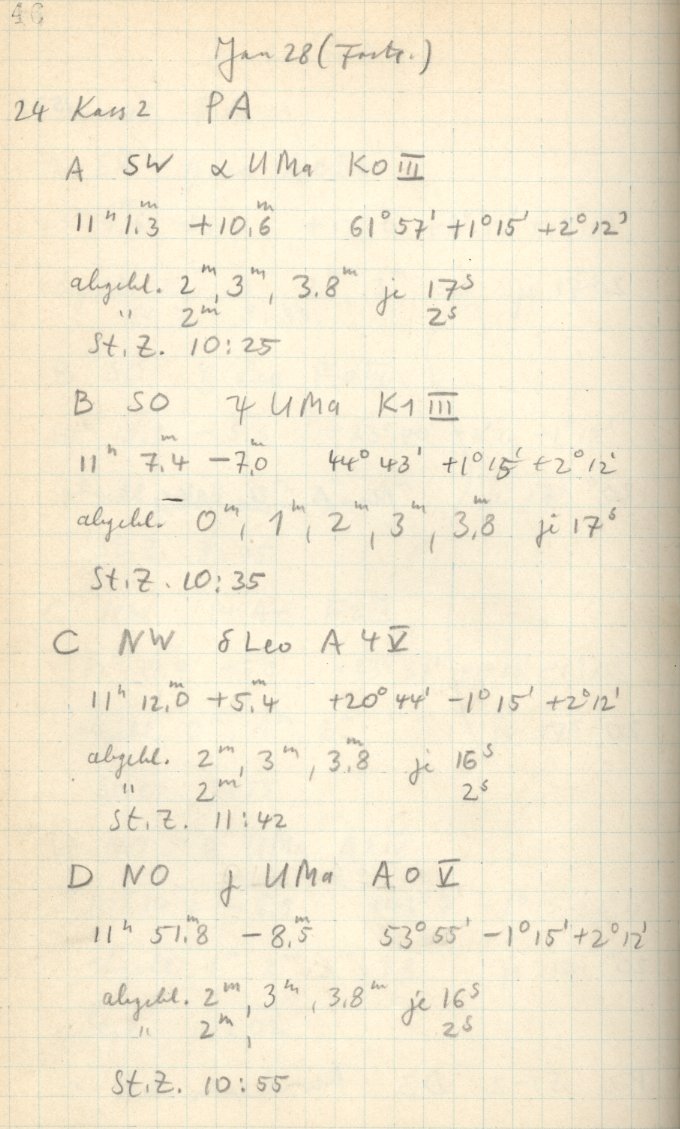 46
Jan 28 (Forts.)
24 Kass 2 PA
A SW α UMa K0 III
11ʰ 1,ᵐ3 +10,ᵐ6 61° 57' +1° 15' +2° 12'
abgebl. 2ᵐ, 3ᵐ, 3.8ᵐ je 17ˢ
" 2ᵐ 2ˢ
St.Z. 10:25
B SO ψ UMa K1 III
11ʰ 7,ᵐ4 −7,ᵐ0 44° 43' +1° 15' +2° 12'
abgebl. 0ᵐ, 1ᵐ, 2ᵐ, 3ᵐ, 3,ᵐ8 je 17ˢ
St.Z. 10:35
C NW δ Leo A 4 V
11ʰ 12,ᵐ0 +5,ᵐ4 +20° 44' −1° 15' +2° 12'
abgebl. 2ᵐ, 3ᵐ, 3,ᵐ8 je 16ˢ
" 2ᵐ 2ˢ
St.Z. 11:42
D NO γ UMa A 0 V
11ʰ 51,ᵐ8 −8,ᵐ5 53° 55' −1° 15' +2° 12'
abgebl. 2ᵐ, 3ᵐ, 3,8ᵐ je 16ˢ
" 2ᵐ, 2ˢ
St.Z. 10:55